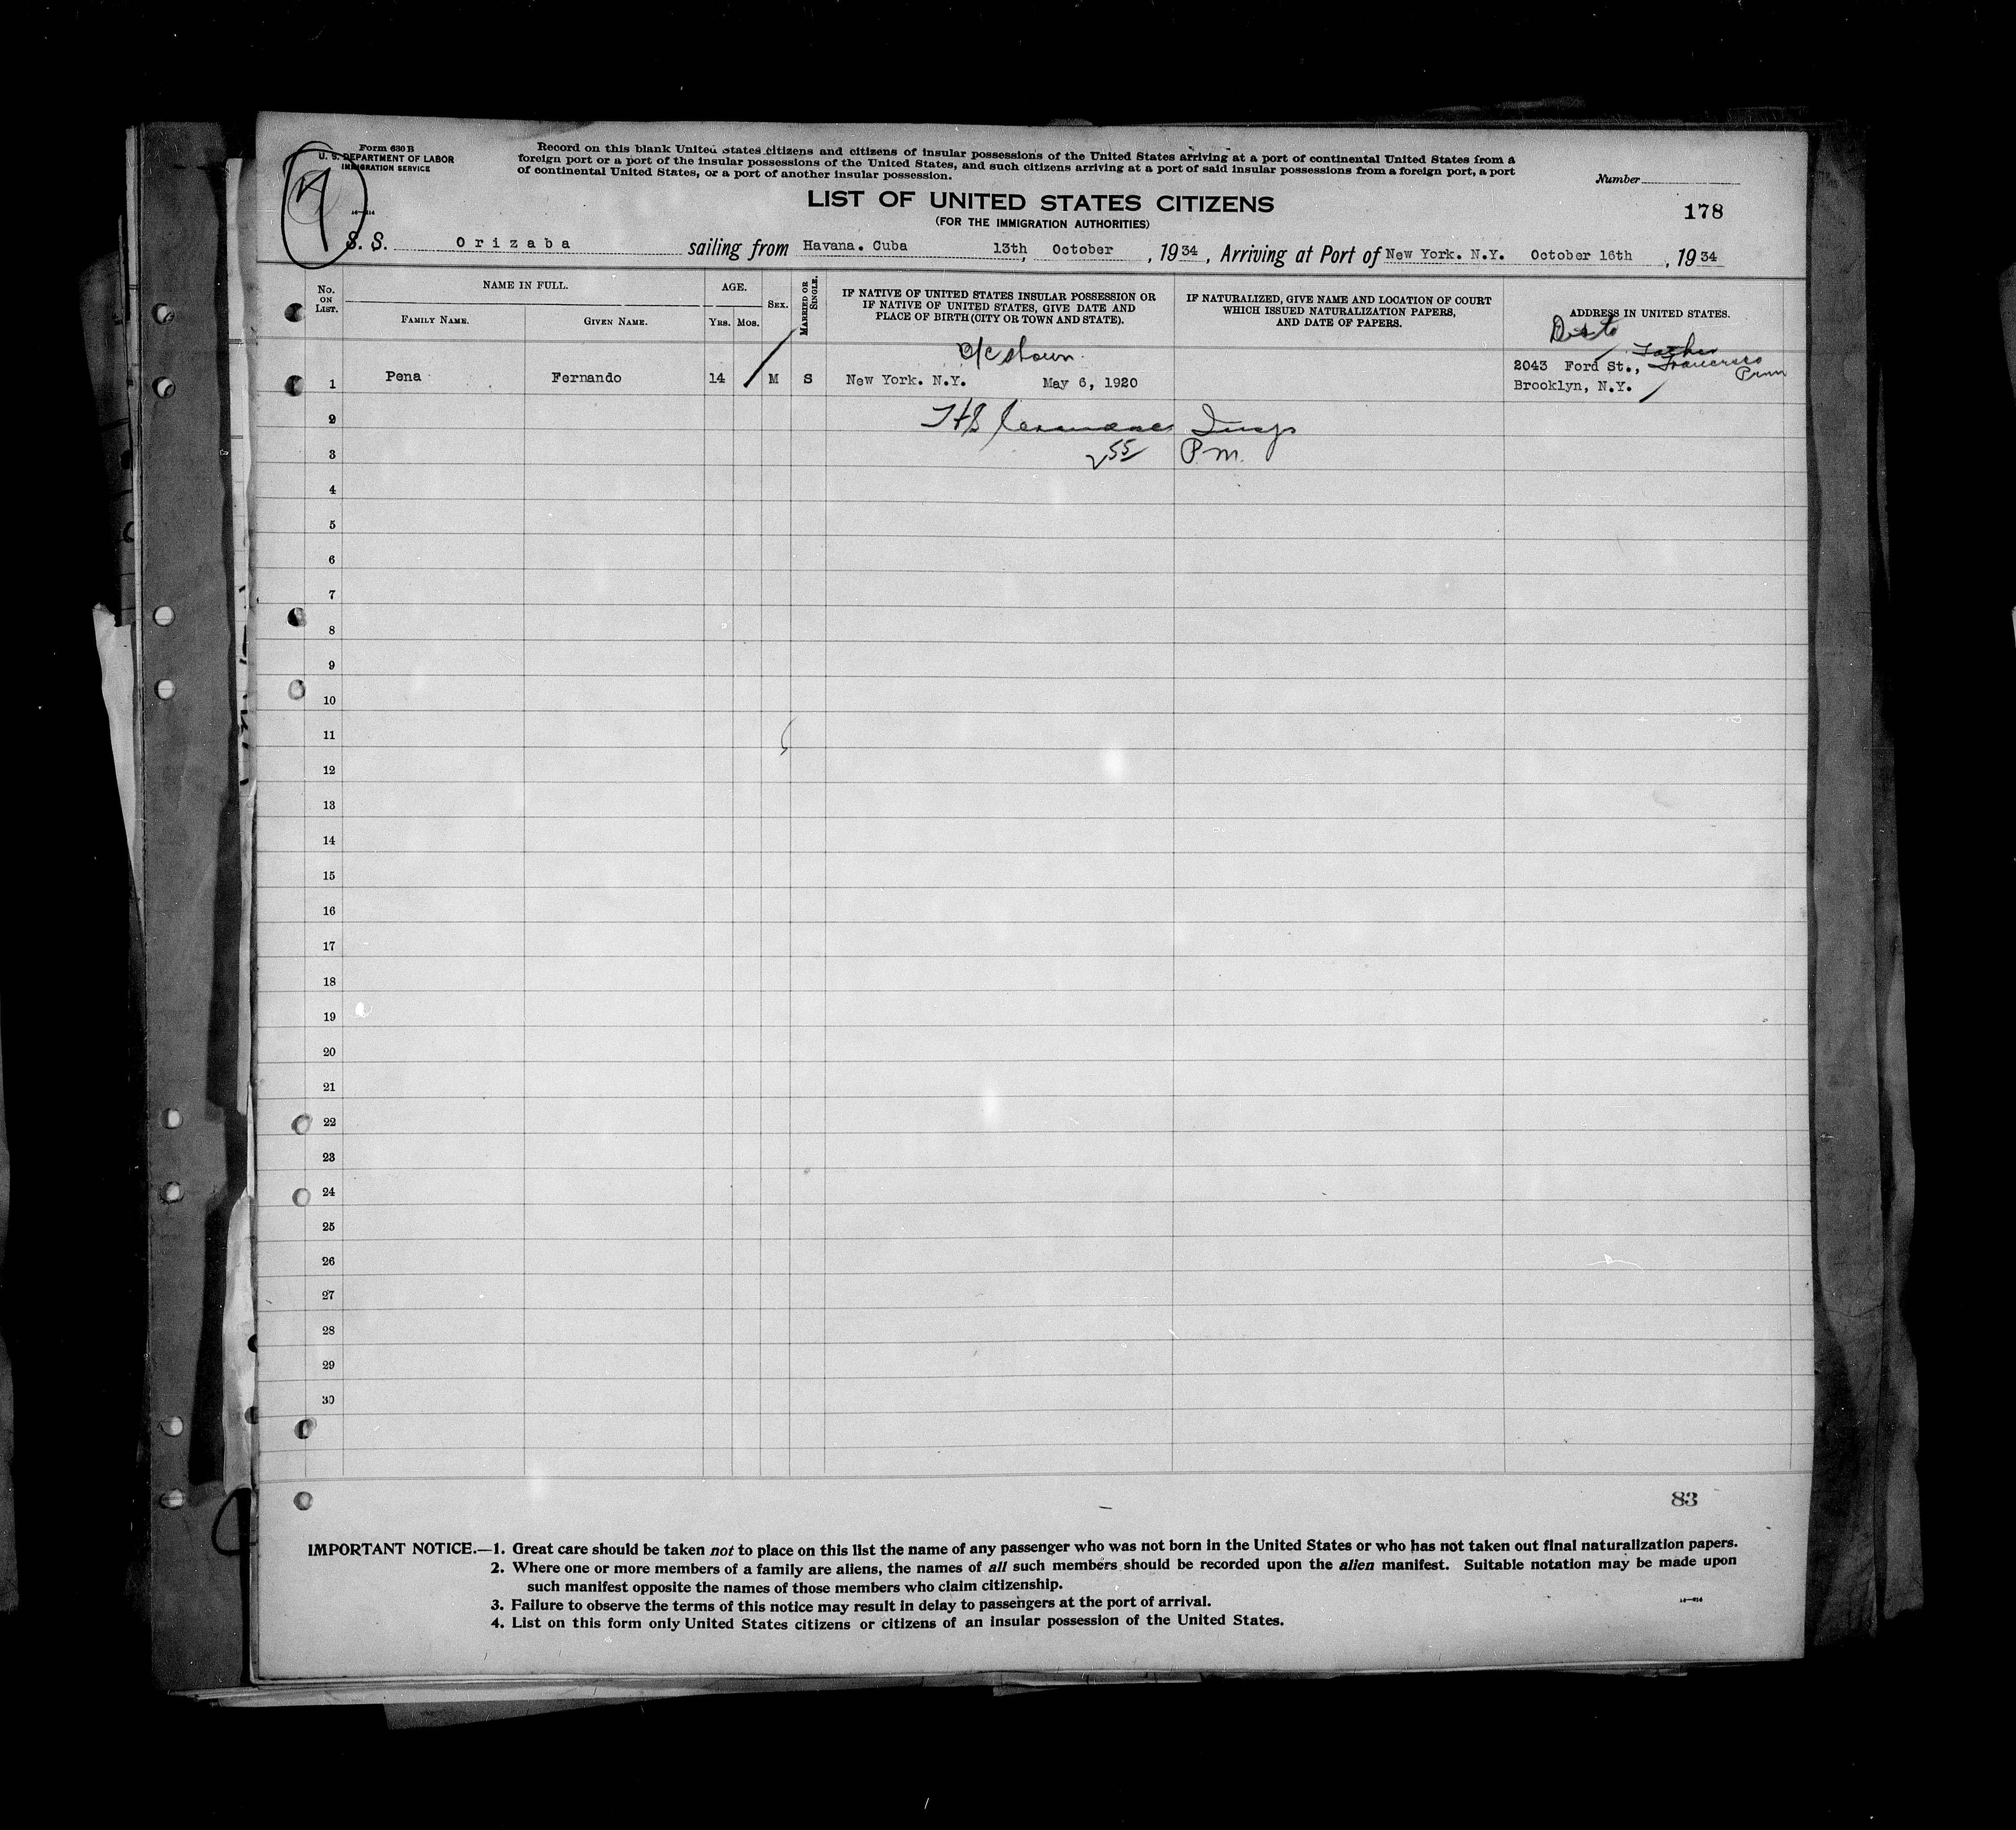 Form 630 B
U. S. DEPARTMENT OF LABOR
IMMIGRATION SERVICE
Record on this blank United States citizens and citizens of insular possessions of the United States arriving at a port of continental United States from a
foreign port or a port of the insular possessions of the United States, and such citizens arriving at a port of said insular possessions from a foreign port, a port
of continental United States, or a port of another insular possession.
Number
LIST OF UNITED STATES CITIZENS
178
(FOR THE IMMIGRATION AUTHORITIES)
S. S. Orizaba sailing from Havana. Cuba 13th, October, 1934, Arriving at Port of New York. N.Y. October 16th, 1934
No. ON LIST.
NAME IN FULL.
FAMILY NAME.
GIVEN NAME.
AGE.
YRS. MOS.
SEX.
MARRIED OR SINGLE.
IF NATIVE OF UNITED STATES INSULAR POSSESSION OR
IF NATIVE OF UNITED STATES, GIVE DATE AND
PLACE OF BIRTH (CITY OR TOWN AND STATE).
IF NATURALIZED, GIVE NAME AND LOCATION OF COURT
WHICH ISSUED NATURALIZATION PAPERS,
AND DATE OF PAPERS.
ADDRESS IN UNITED STATES.
shown. Father
1 Pena Fernando 14 M S New York. N.Y. May 6, 1920 2043 Ford St., Francisco
Brooklyn, N.Y.
2 Insp
3 2 55 P.m.
4
5
6
7
8
9
10
11
12
13
14
15
16
17
18
19
20
21
22
23
24
25
26
27
28
29
30
83
IMPORTANT NOTICE.—1. Great care should be taken not to place on this list the name of any passenger who was not born in the United States or who has not taken out final naturalization papers.
2. Where one or more members of a family are aliens, the names of all such members should be recorded upon the alien manifest. Suitable notation may be made upon
such manifest opposite the names of those members who claim citizenship.
3. Failure to observe the terms of this notice may result in delay to passengers at the port of arrival.
4. List on this form only United States citizens or citizens of an insular possession of the United States.